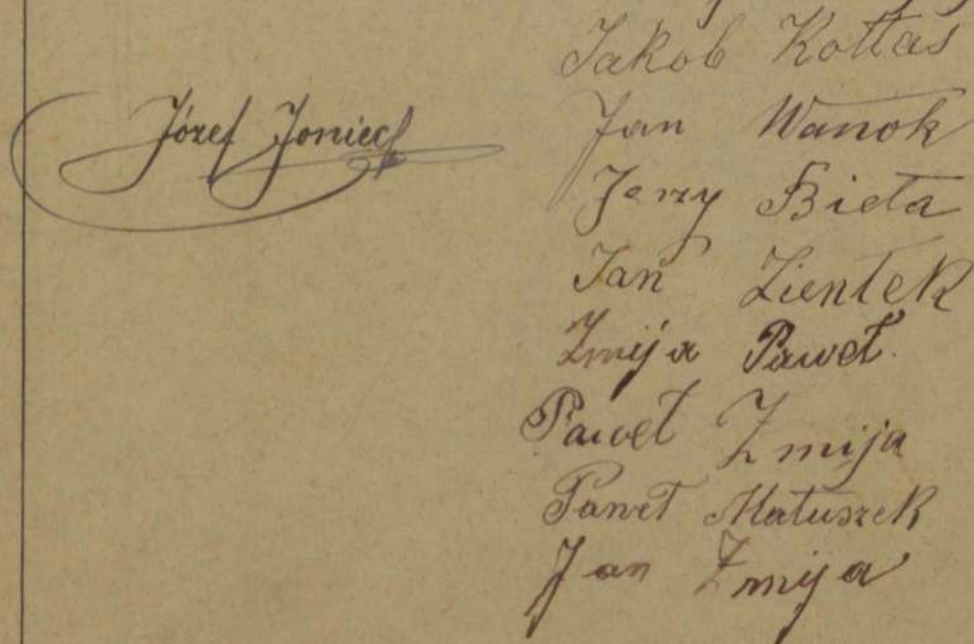 Józef Joniec
Jakob Kottas
Jan Wanok
Jerzy Bieta
Jan Zientek
Zmija Paweł
Paweł Zmija
Paweł Matuszek
Jan Zmija